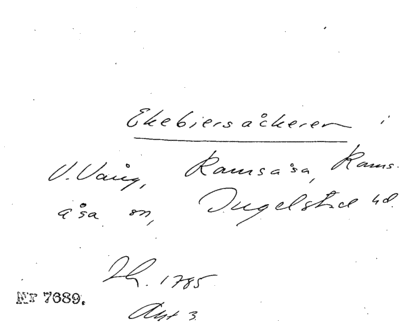 Ekebiersåckeren i
V. Vång, Ramsåsa, Rams-
åsa sn, Ingelstad hd.
Sk. 1785
Akt 3
Nr 7689.